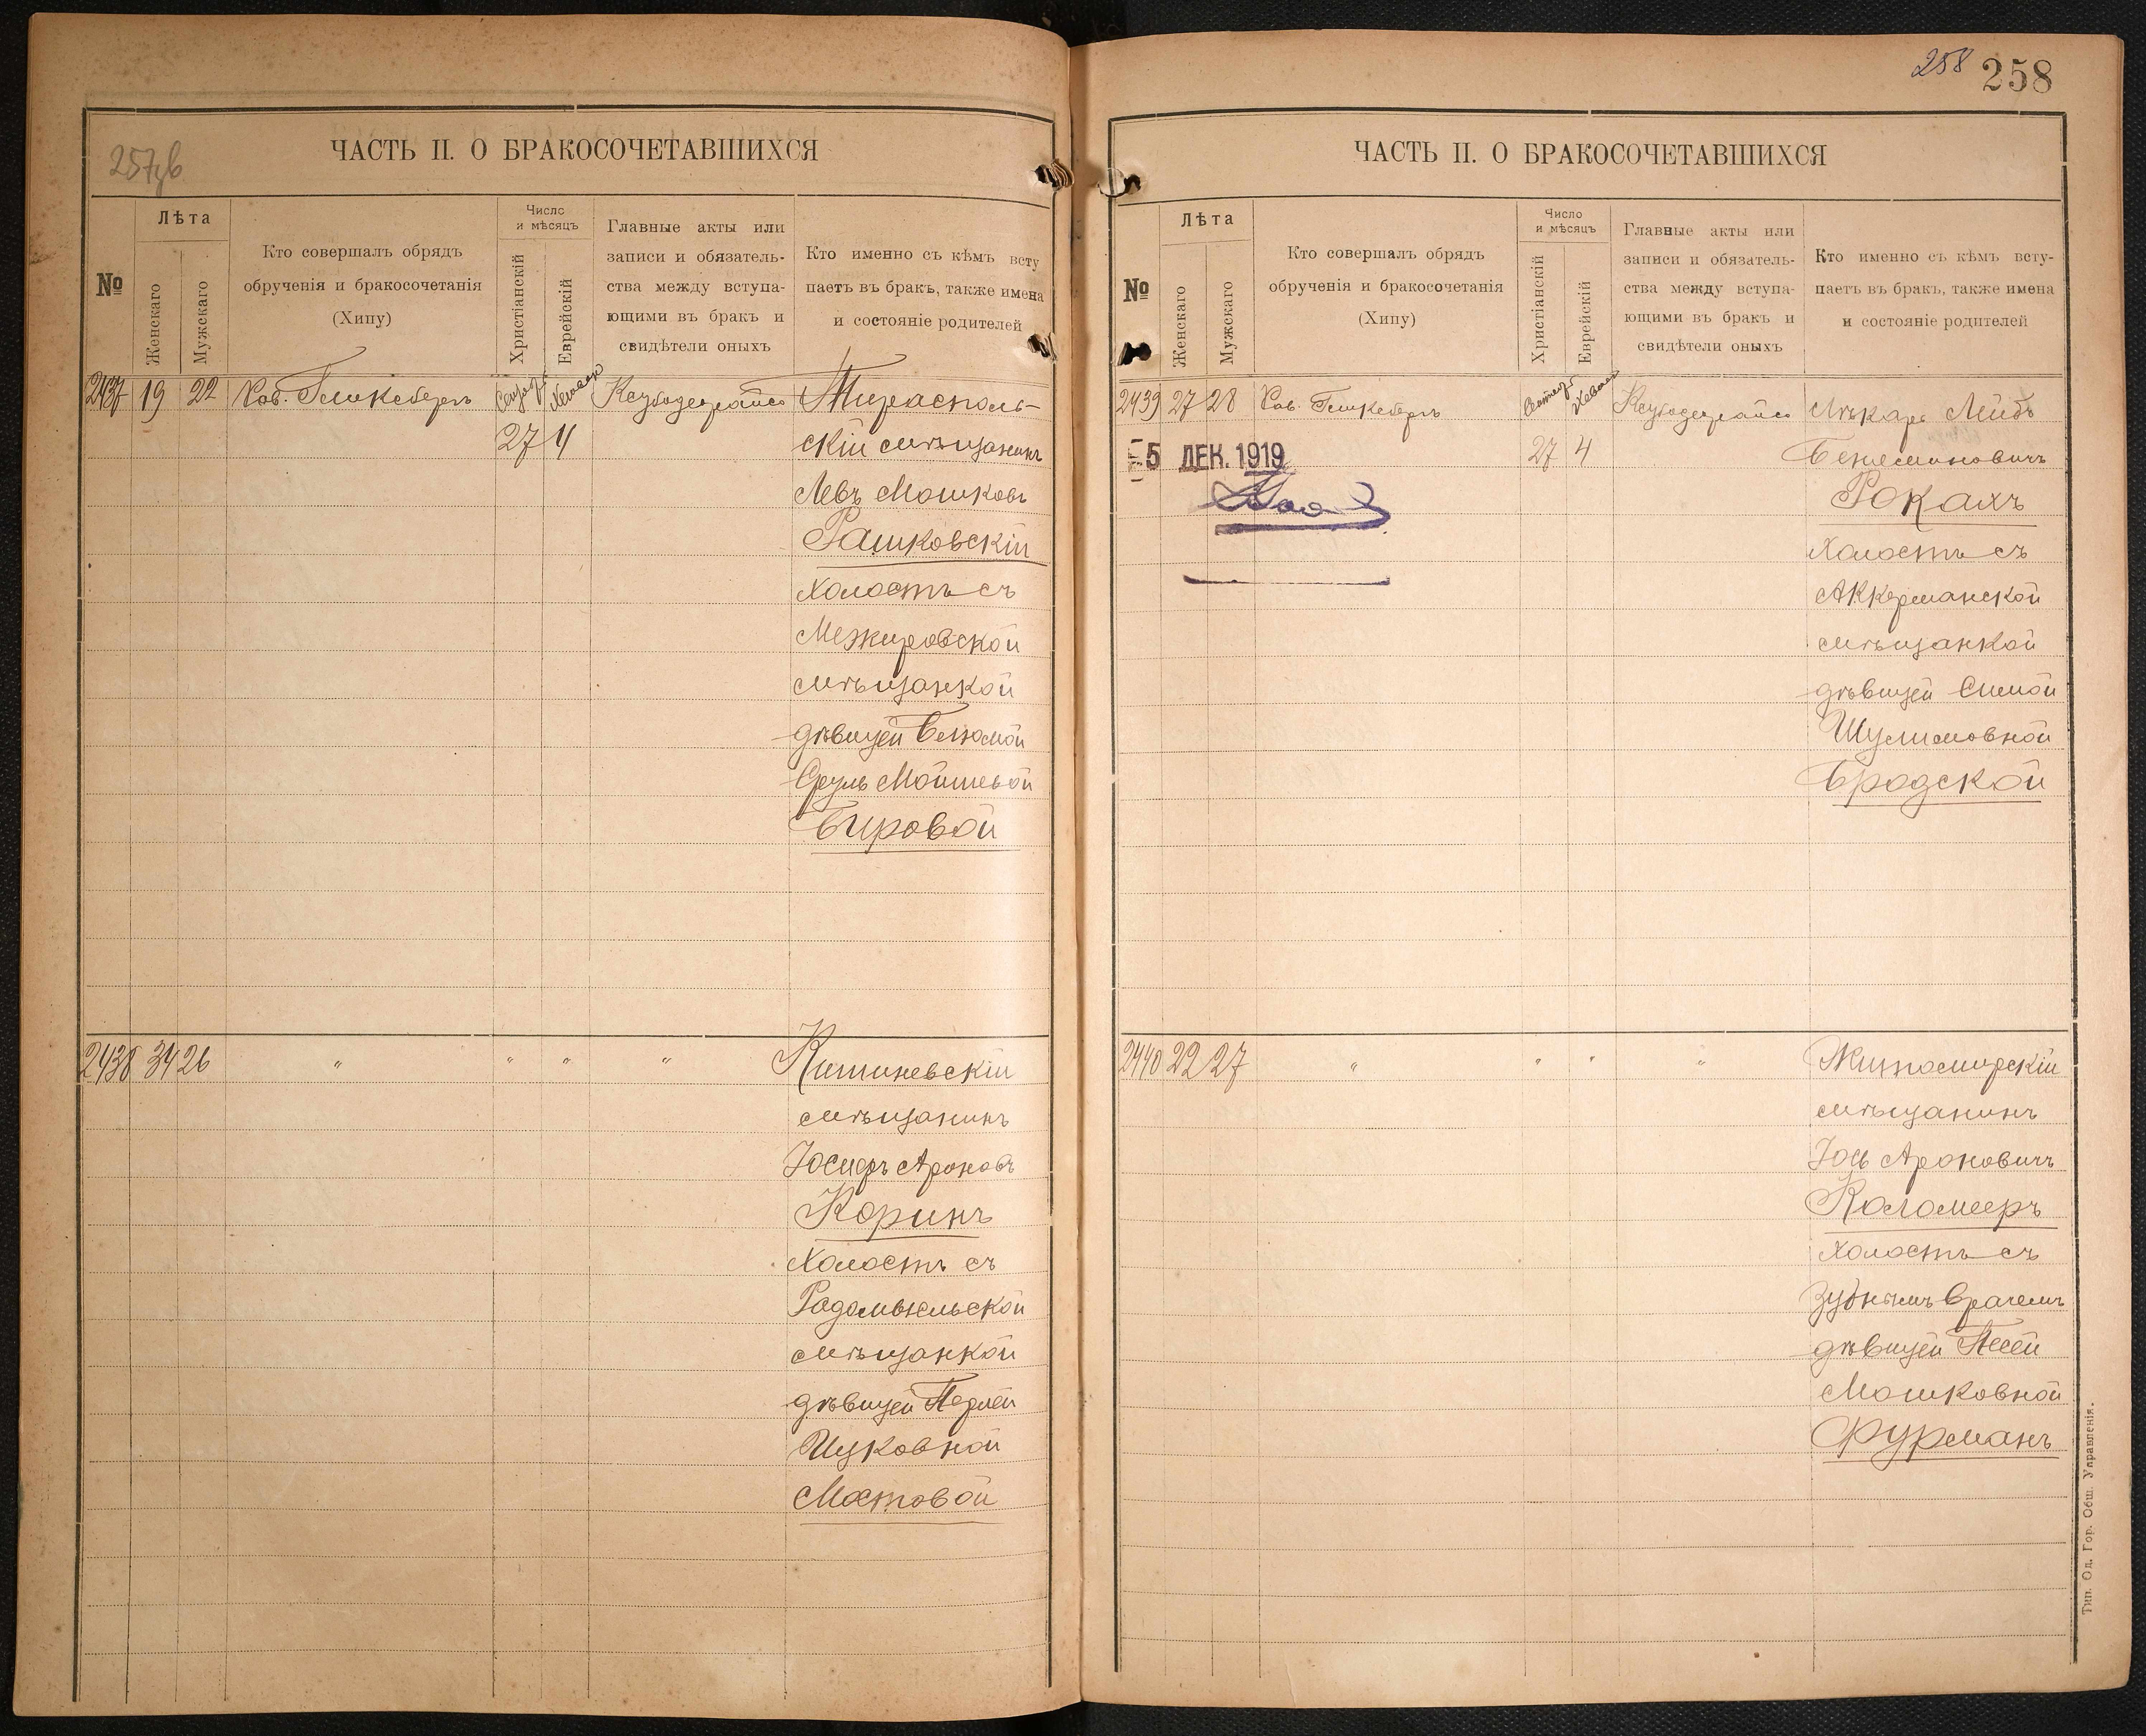 257об
ЧАСТЬ II. О БРАКОСОЧЕТАВШИХСЯ
№
Лѣта
Женскаго
Мужскаго
Кто совершалъ обрядъ
обрученія и бракосочетанія
(Хипу)
Число
и мѣсяцъ
Христіанскій
Еврейскій
Главные акты или
записи и обязатель-
ства между вступа-
ющими въ бракъ и
свидѣтели оныхъ
Кто именно съ кѣмъ всту
паетъ въ бракъ, также имена
и состояніе родителей
2437 19 22
27 4
Тирасполь-
скій мѣщанинъ
Левъ Мошковъ
Рашковскій
холостъ съ
Межировской
мѣщанкой
дѣвицей
Сруль Мойшевой
Бировой
2438 34 26 " " " "
Кишиневскій
мѣщанинъ
Іосифъ Ароновъ
Коринъ
Холостъ съ
Радомысльской
мѣщанкой
дѣвицей Перлей
Ицковной
Мостовой
258 258
ЧАСТЬ II. О БРАКОСОЧЕТАВШИХСЯ
№
Лѣта
Женскаго
Мужскаго
Кто совершалъ обрядъ
обрученія и бракосочетанія
(Хипу)
Число
и мѣсяцъ
Христіанскій
Еврейскій
Главные акты или
записи и обязатель-
ства между вступа-
ющими въ бракъ и
свидѣтели оныхъ
Кто именно съ кѣмъ всту-
паетъ въ бракъ, также имена
и состояніе родителей
2439 27 28
27 4
5 ДЕК. 1919
Лѣкарь Лейбъ
Беньеминовичъ
Рокахъ
Холостъ съ
Аккерманской
мѣщанкой
дѣвицей Симой
Шулимовной
Бродской
2440 22 27 " " " "
Житомирскій
мѣщанинъ
Іось Ароновичъ
Коломееръ
холостъ съ
зубнымъ врачемъ
дѣвицей Песей
Мошковной
Фурманъ
Тип. Од. Гор. Общ. Управленія.